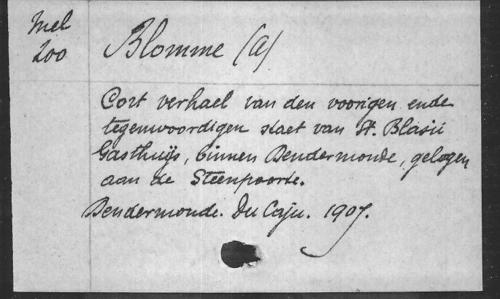 Mel
200
Blomme (A)
Cort verhael van den voorigen ende
tegenwoordigen staet van St. Blasii
Gasthuijs, binnen Dendermonde, gelegen
aan de Steenpoorte.
Dendermonde. Du Caju. 1907.